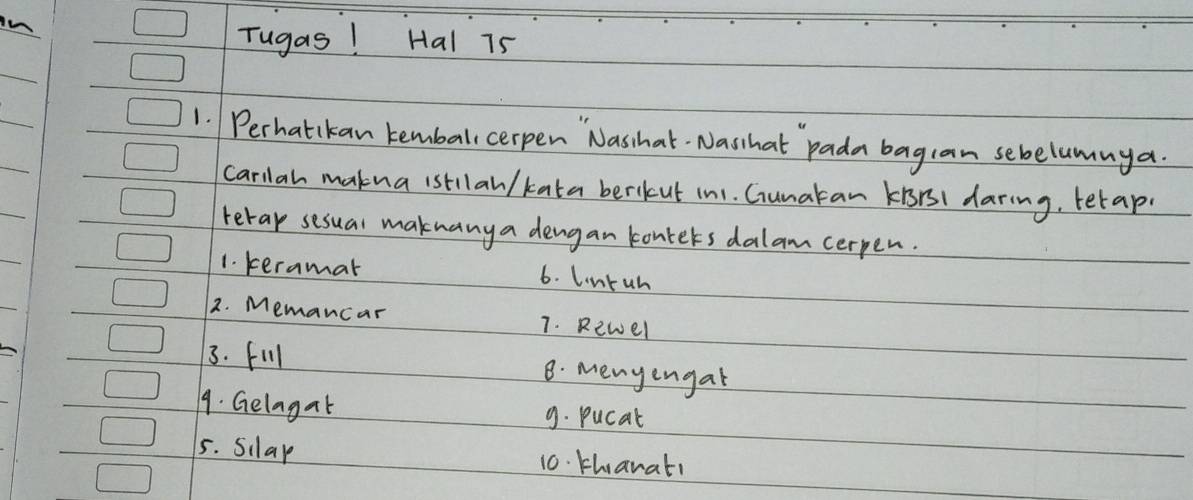 Tugas! Hal 75
1. Perhatikan kembali cerpen "Nasihat-Nasihat" pada bagian sebelumnya.
Carilah makna istilah/kata berikut ini. Gunakan KBBI daring, tetapi
tetap sesuai maknanya dengan konteks dalam cerpen.
1. keramat
6. lintuh
2. Memancar
7. Rewel
3. fiil
8. Menyengat
4. Gelagat
9. pucat
5. Silap
10. khianati